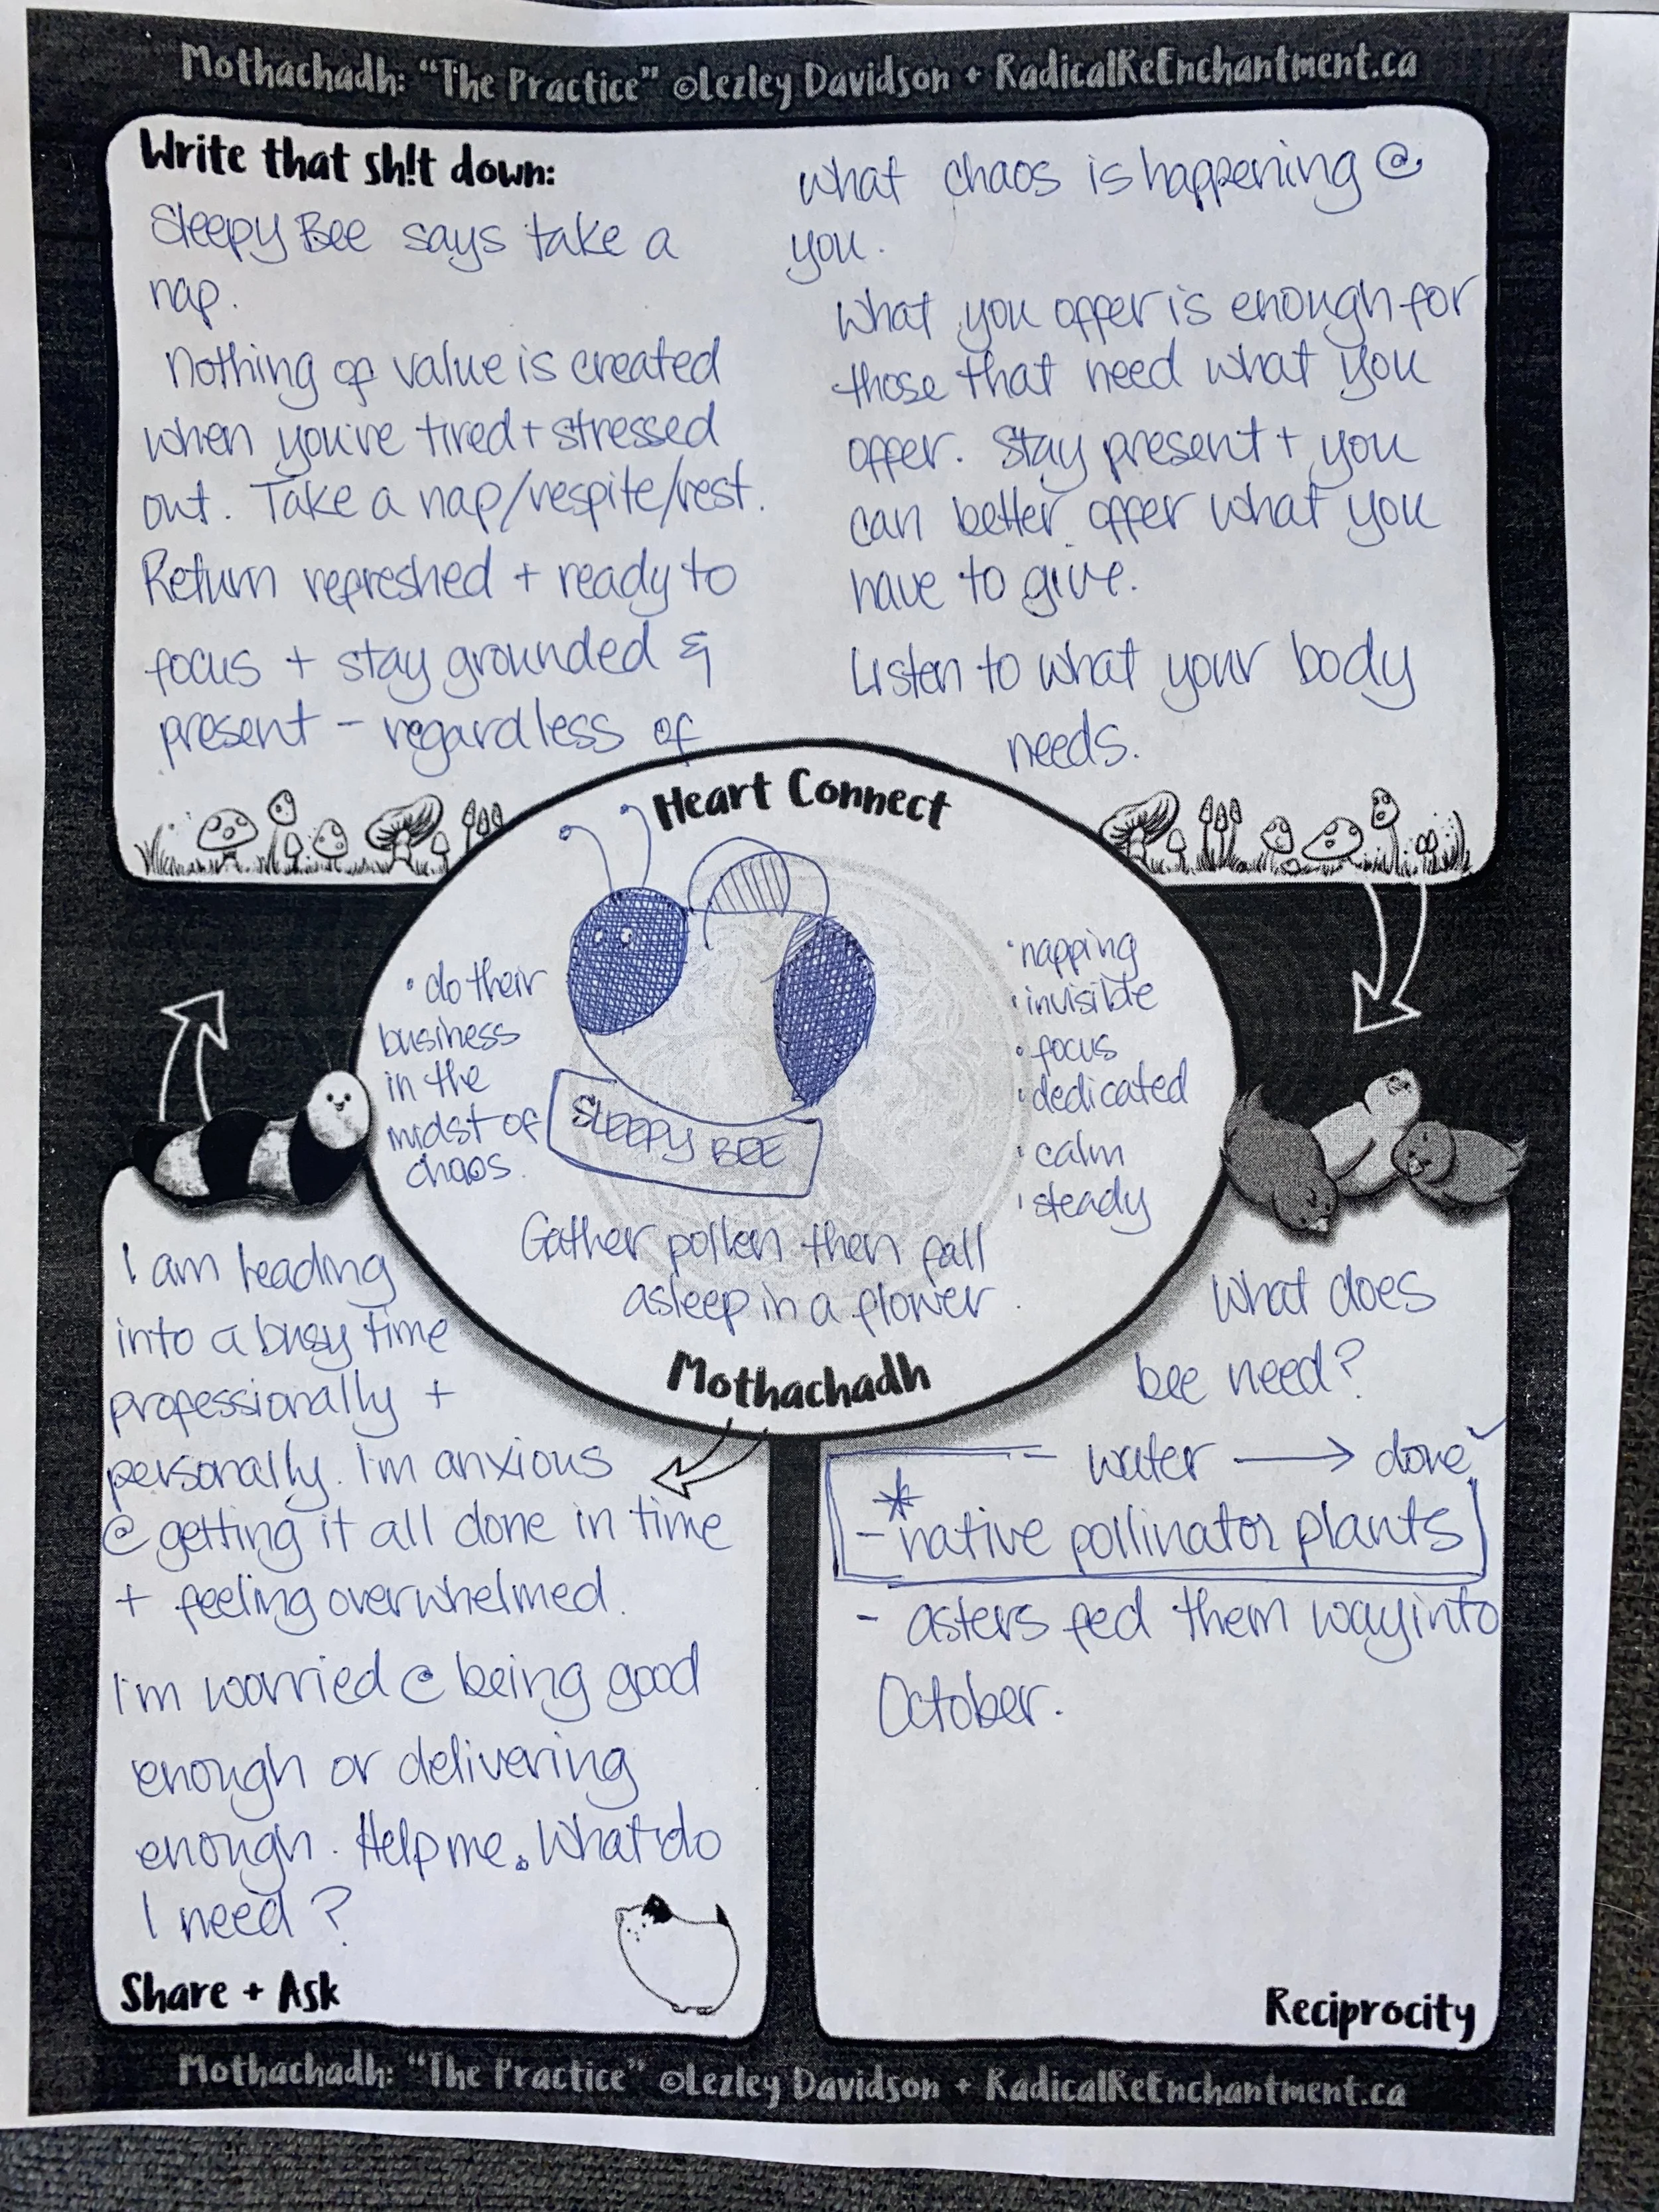 Mothachadh: "The Practice" ©Lezley Davidson + RadicalReEnchantment.ca
Write that sh!t down:
Sleepy Bee says take a
nap.
Nothing of value is created
when you're tired + stressed
out. Take a nap/respite/rest.
Return refreshed + ready to
focus + stay grounded &
present - regardless of
what chaos is happening @
you.
What you offer is enough for
those that need what you
offer. Stay present + you
can better offer what you
have to give.
Listen to what your body
needs.
Heart Connect
• do their
business
in the
midst of
chaos.
SLEEPY BEE
• napping
• invisible
• focus
• dedicated
• calm
• steady
Gather pollen then fall
asleep in a flower.
Mothachadh
I am heading
into a busy time
professionally +
personally. I'm anxious
@ getting it all done in time
+ feeling overwhelmed.
I'm worried @ being good
enough or delivering
enough. Help me. What do
I need?
Share + Ask
What does
bee need?
- water → done ✓
* - native pollinator plants
- asters fed them way into
October.
Reciprocity
Mothachadh: "The Practice" ©Lezley Davidson + RadicalReEnchantment.ca